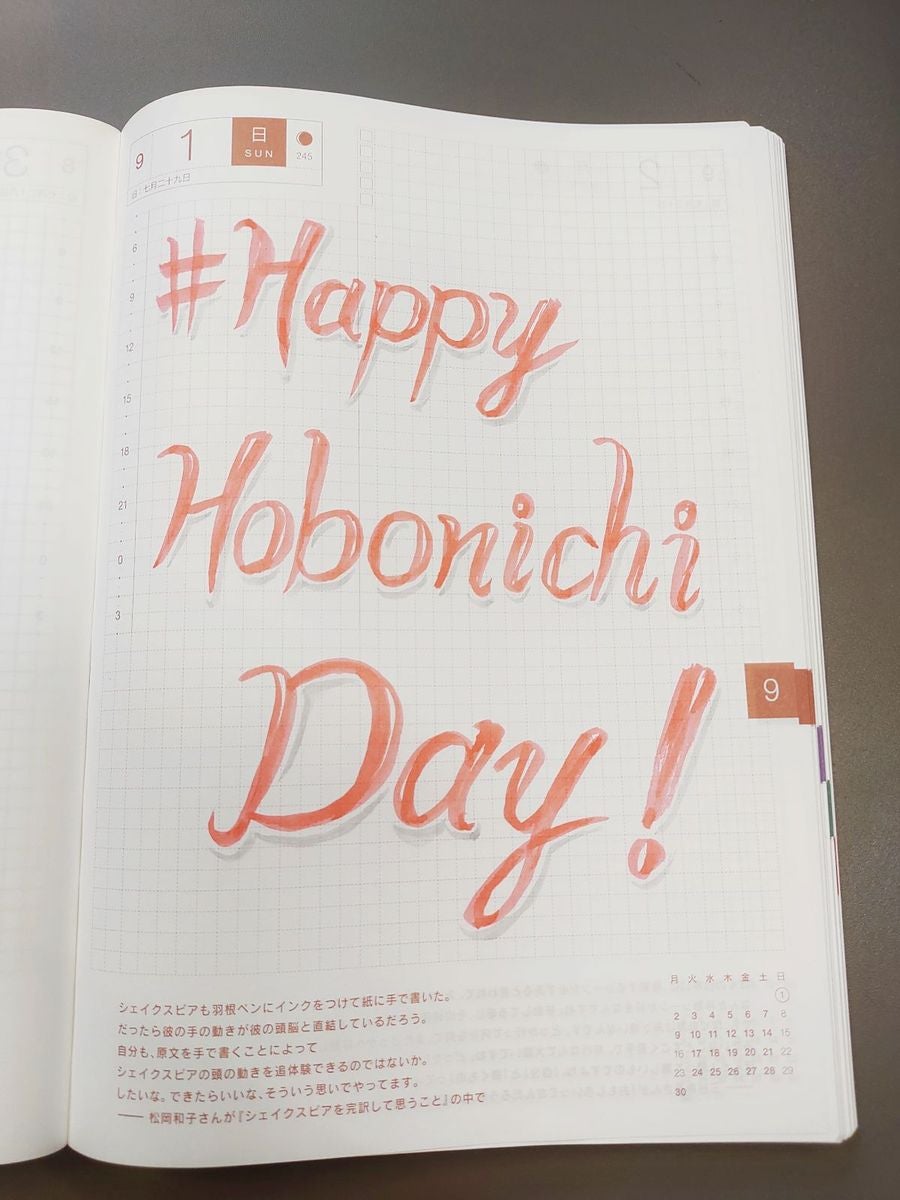 9 1 日 SUN 245
旧 七月二十九日
6
9
12
15
18
21
0
3
#Happy
Hobonichi
Day!
9
シェイクスピアも羽根ペンにインクをつけて紙に手で書いた。
だったら彼の手の動きが彼の頭脳と直結しているだろう。
自分も、原文を手で書くことによって
シェイクスピアの頭の動きを追体験できるのではないか。
したいな。できたらいいな、そういう思いでやってます。
—— 松岡和子さんが『シェイクスピアを完訳して思うこと』の中で
月 火 水 木 金 土 日
1
2 3 4 5 6 7 8
9 10 11 12 13 14 15
16 17 18 19 20 21 22
23 24 25 26 27 28 29
30